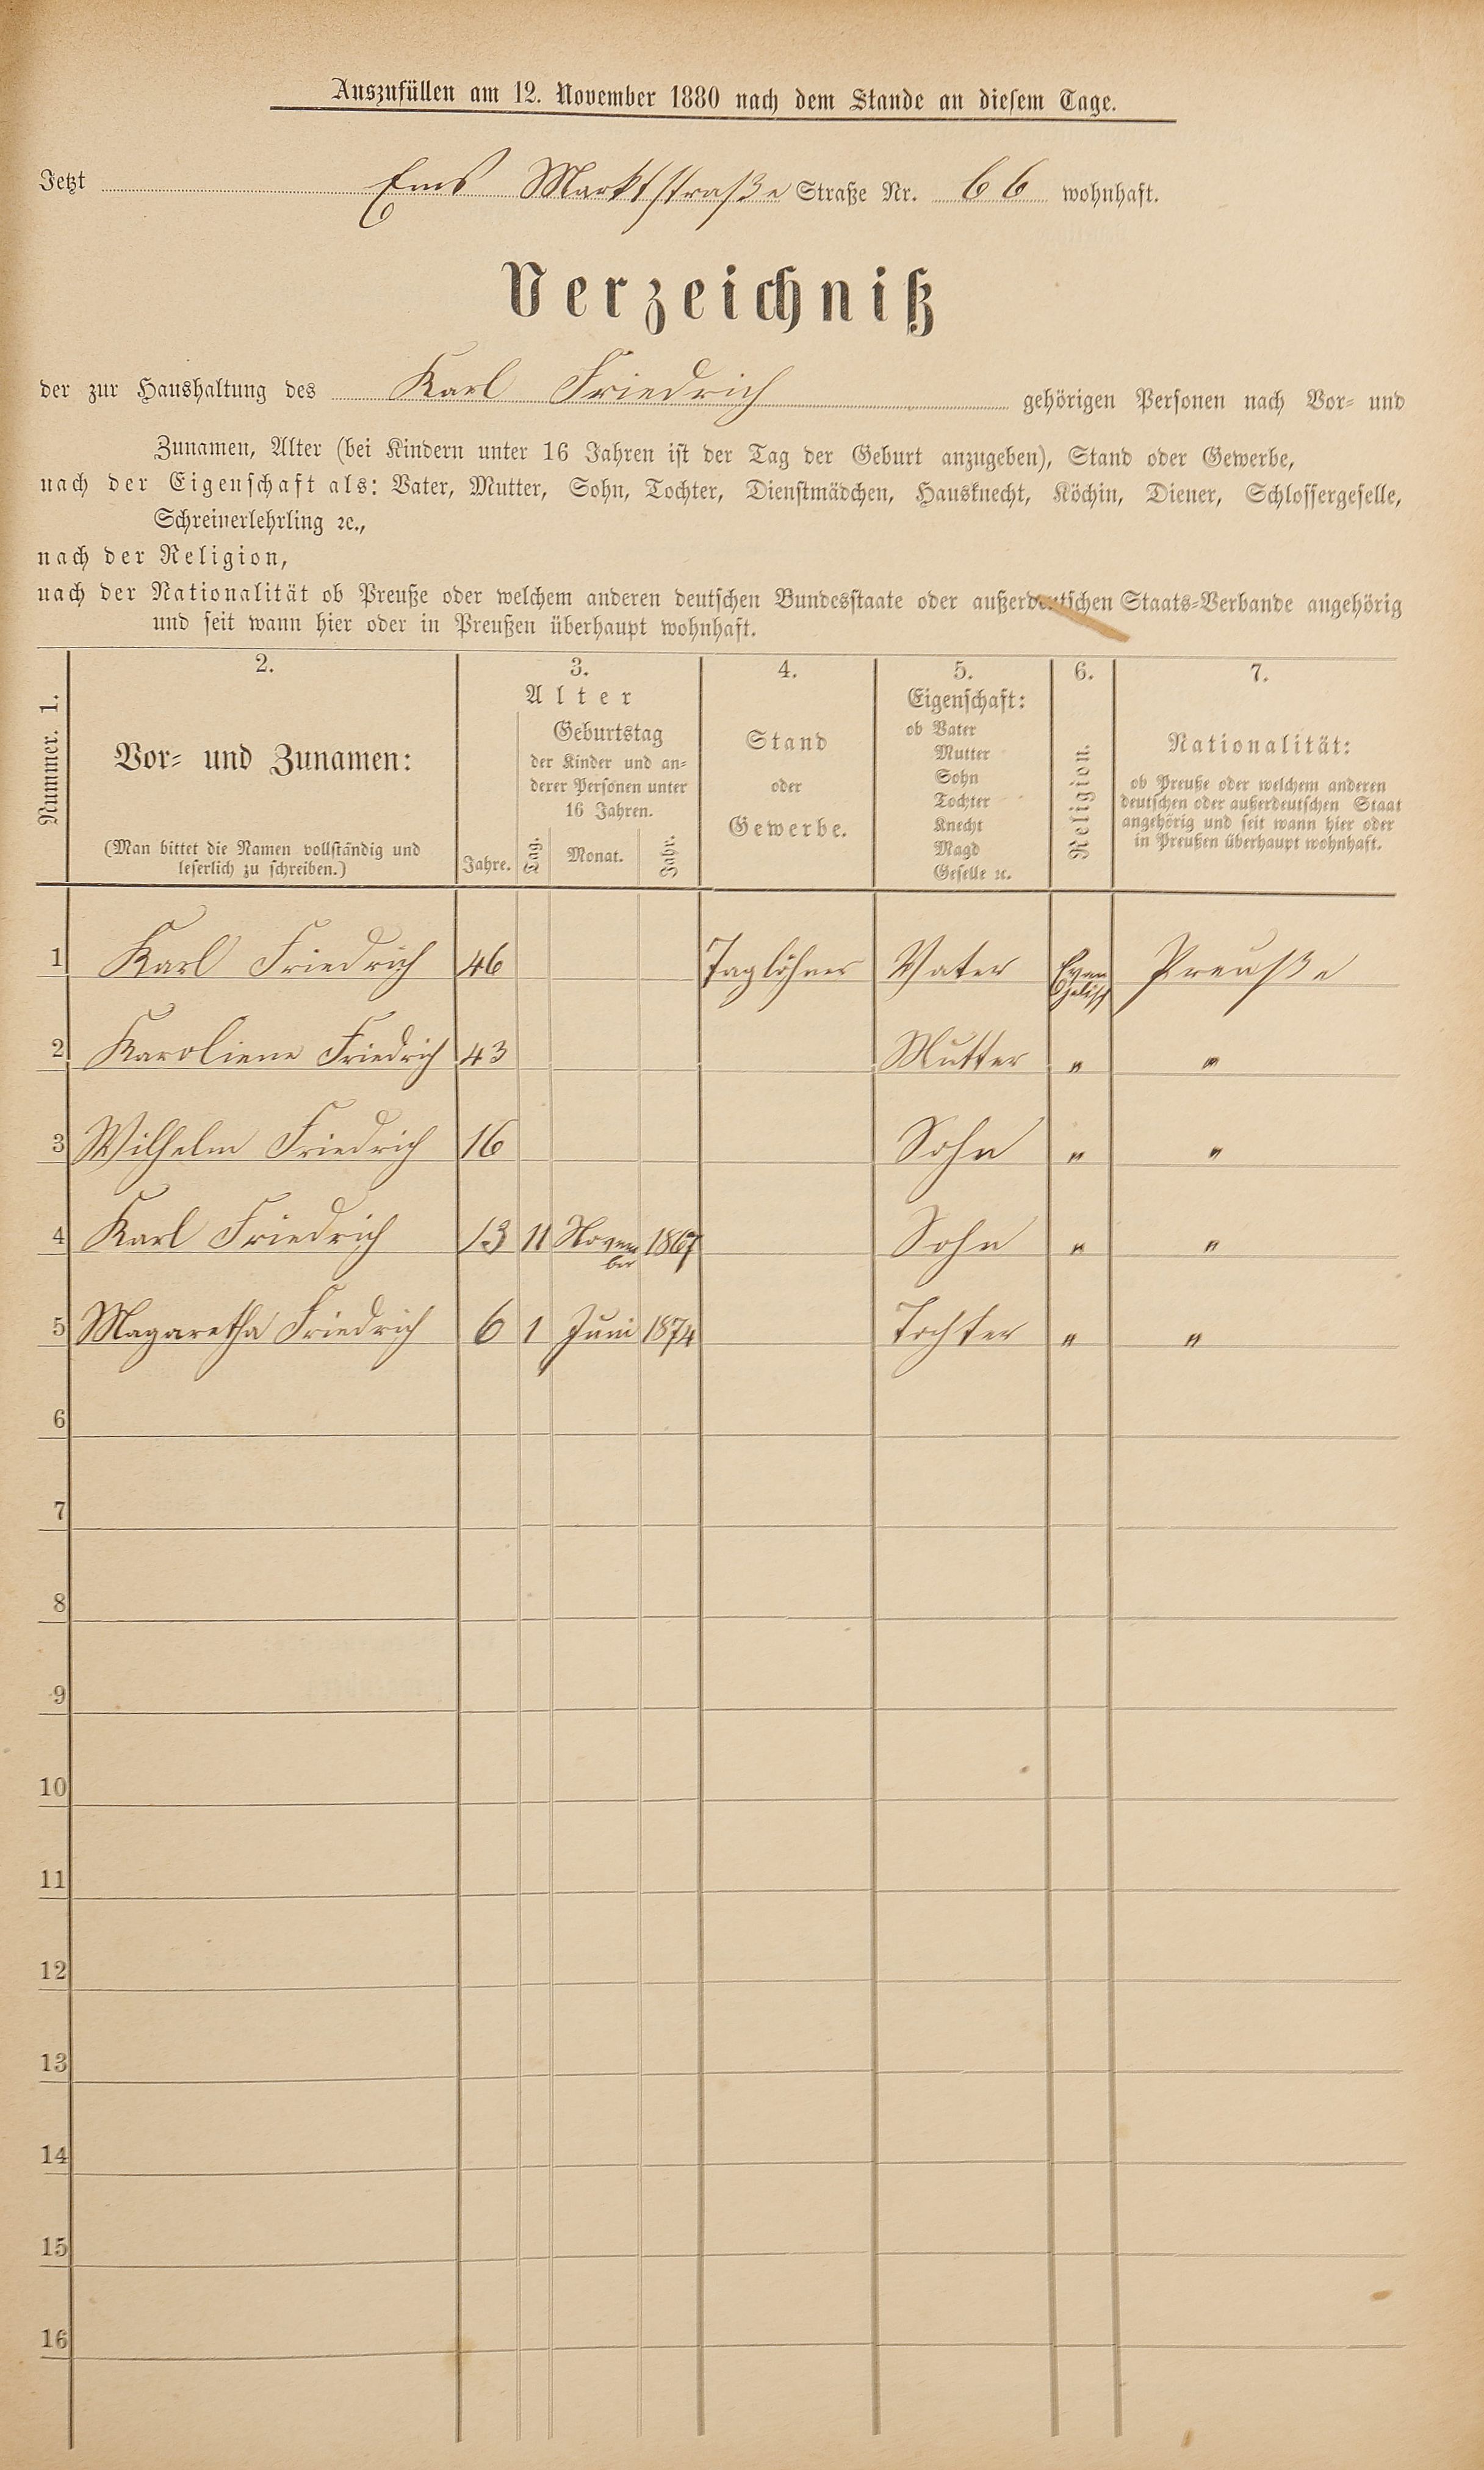 Auszufüllen am 12. November 1880 nach dem Stande an diesem Tage.
Jetzt Ems Marktstraße Straße Nr. 66 wohnhaft.
Verzeichniß
der zur Haushaltung des Karl Friedrich gehörigen Personen nach Vor- und
Zunamen, Alter (bei Kindern unter 16 Jahren ist der Tag der Geburt anzugeben), Stand oder Gewerbe,
nach der Eigenschaft als: Vater, Mutter, Sohn, Tochter, Dienstmädchen, Hausknecht, Köchin, Diener, Schlossergeselle,
Schreinerlehrling ꝛc.,
nach der Religion,
nach der Nationalität ob Preuße oder welchem anderen deutschen Bundesstaate oder außerdeutschen Staats-Verbande angehörig
und seit wann hier oder in Preußen überhaupt wohnhaft.
Nummer. 1.
2.
Vor- und Zunamen:
(Man bittet die Namen vollständig und
leserlich zu schreiben.)
3.
Alter
Jahre.
Geburtstag
der Kinder und an-
derer Personen unter
16 Jahren.
Tag. Monat. Jahr.
4.
Stand
oder
Gewerbe.
5.
Eigenschaft:
ob Vater
Mutter
Sohn
Tochter
Knecht
Magd
Geselle ꝛc.
6.
Religion.
7.
Nationalität:
ob Preuße oder welchem anderen
deutschen oder außerdeutschen Staat
angehörig und seit wann hier oder
in Preußen überhaupt wohnhaft.
1 Karl Friedrich 46 Taglöhner Vater Evan Preuße
gelisch
2 Karoliene Friedrich 43 Mutter " "
3 Wilhelm Friedrich 16 Sohn " "
4 Karl Friedrich 13 11 Novem 1867 Sohn " "
ber
5 Magaretha Friedrich 6 1 Juni 1874 Tochter " "
6
7
8
9
10
11
12
13
14
15
16